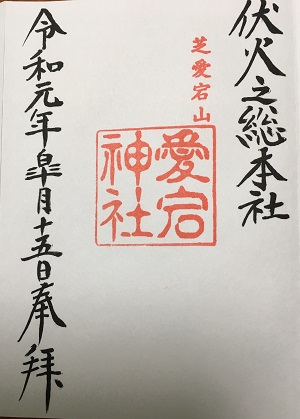 伏火之総本社
芝愛宕山
愛宕
神社
令和元年皐月十五日奉拝